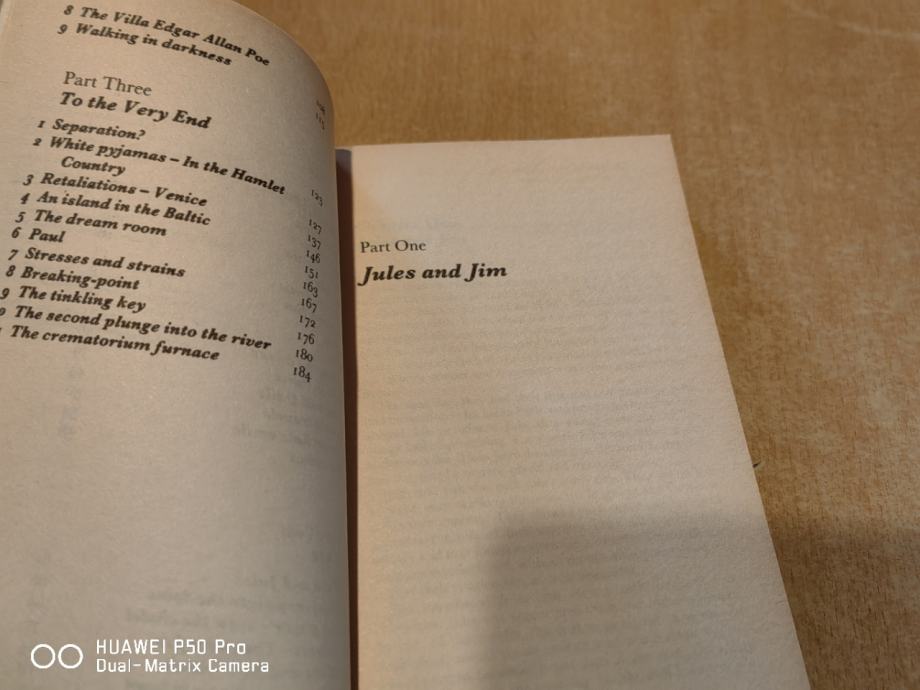 8 The Villa Edgar Allan Poe
9 Walking in darkness
115
Part Three
To the Very End
1 Separation?
2 White pyjamas – In the Hamlet
Country
3 Retaliations – Venice
4 An island in the Baltic
5 The dream room
6 Paul
7 Stresses and strains
8 Breaking-point
9 The tinkling key
The second plunge into the river
The crematorium furnace
125
127
137
146
151
163
167
172
176
180
184
Part One
Jules and Jim
HUAWEI P50 Pro
Dual-Matrix Camera